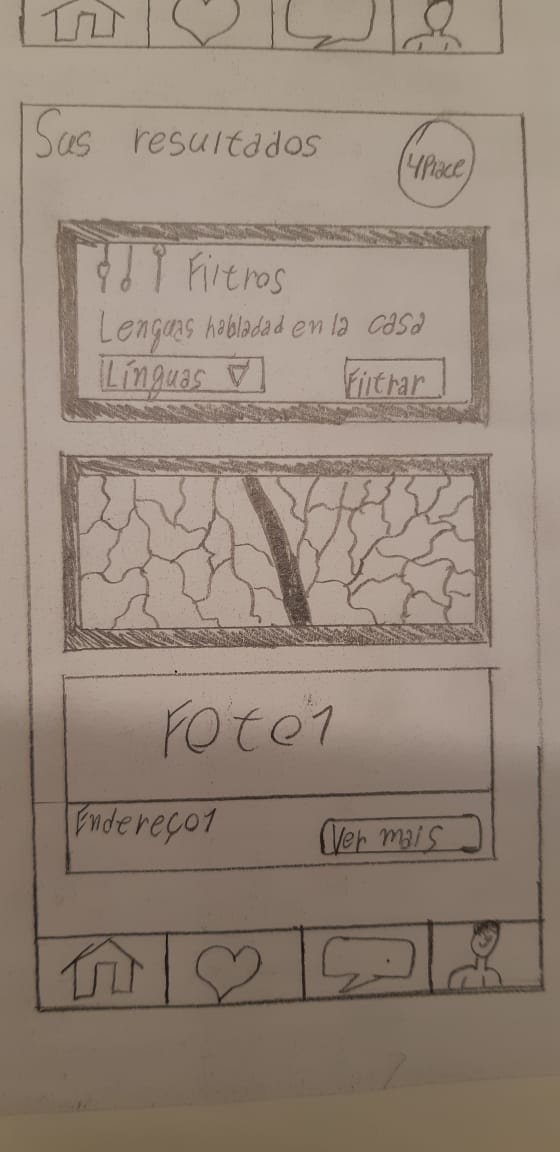 Sus resultados
4Place
Filtros
Lenguas habladad en la casa
Línguas
Filtrar
Foto1
Endereço1
Ver mais